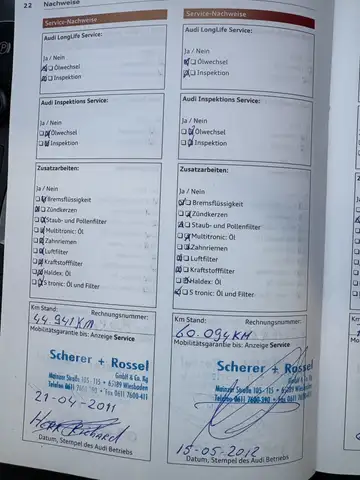 22 Nachweise
Service-Nachweise
Audi LongLife Service:
Ja / Nein
Ölwechsel
Inspektion
Audi Inspektions Service:
Ja / Nein
Ölwechsel
Inspektion
Zusatzarbeiten:
Ja / Nein
Bremsflüssigkeit
Zündkerzen
Staub- und Pollenfilter
Multitronic: Öl
Zahnriemen
Luftfilter
Kraftstofffilter
Haldex: Öl
S tronic: Öl und Filter
Km Stand: Rechnungsnummer:
44.941 KM
Mobilitätsgarantie bis: Anzeige Service
Scherer + Rossel
GmbH & Co. Kg
Mainzer Straße 105 - 115 • 65189 Wiesbaden
Telefon 0611 7600-240 • Fax 0611 7600-411
21-04-2011
Herr Richard
Datum, Stempel des Audi Betriebs
Service-Nachweise
Audi LongLife Service:
Ja / Nein
Ölwechsel
Inspektion
Audi Inspektions Service:
Ja / Nein
Ölwechsel
Inspektion
Zusatzarbeiten:
Ja / Nein
Bremsflüssigkeit
Zündkerzen
Staub- und Pollenfilter
Multitronic: Öl
Zahnriemen
Luftfilter
Kraftstofffilter
Haldex: Öl
S tronic: Öl und Filter
Km Stand: Rechnungsnummer:
60.094 KM
Mobilitätsgarantie bis: Anzeige Service
Scherer + Rossel
GmbH & Co. Kg
Mainzer Straße 105 - 115 • 65189 Wiesbaden
Telefon 0611 7600-240 • Fax 0611
15-05-2012
Datum, Stempel des Audi Betriebs